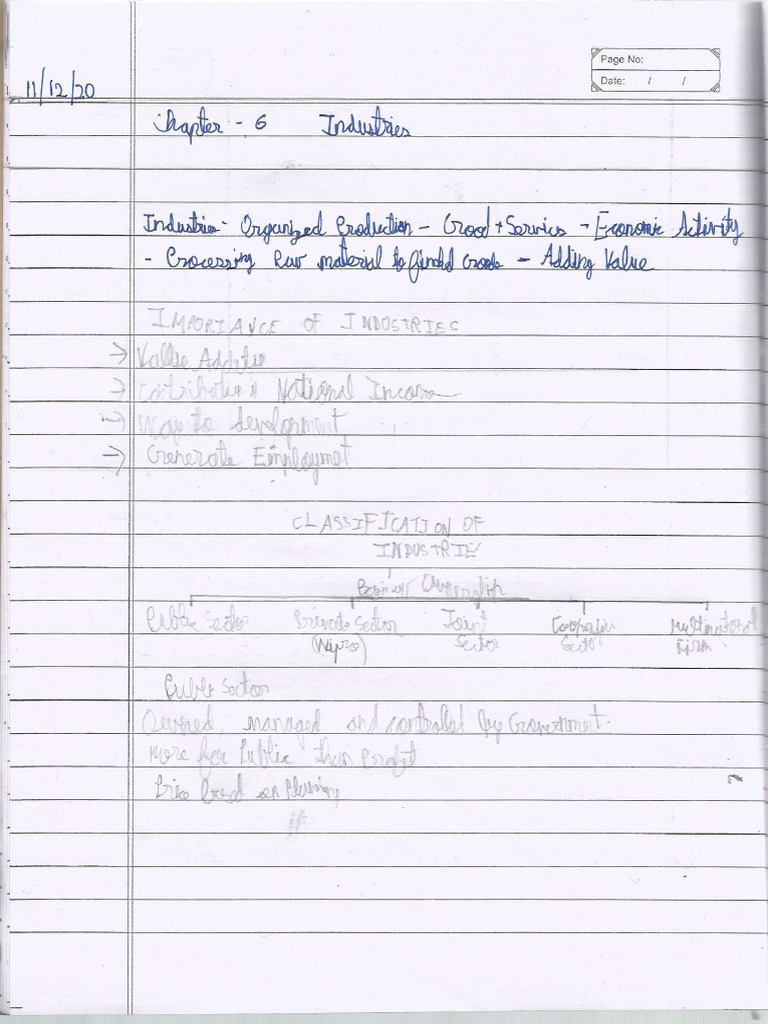 Page No:
Date: / /
11/12/20
Chapter - 6 Industries
Industries - Organized Production - Good + Services - Economic Activity
- Processing Raw material to finishd Goods - Adding Value
IMPORTANCE OF INDUSTRIES
→ Value Additio
→ Contribution National Income
→ Way to development
→ Generate Employmet
CLASSIFICATION OF
INDUSTRIE
Basis of Ownership
Public Sector Private Sector Joint Cooperative Multinational
(Wipro) Sector Sector Firm
Public Sector
Owned, managed and controlled by Government.
More for Public than Profit